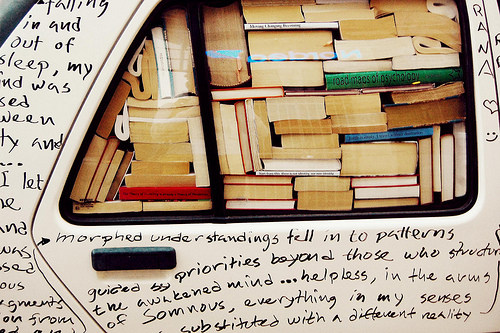 falling
in and
out of
sleep, my
ind was
sed
ween
ty and
...
I let
he
and
was
osed
ous
gments
on from
Moving Changing Becoming
road maps of psychology
RANA ♥ :)
morphed understandings fell in to patterns
guided by priorities beyond those who structur
the awakened mind ... helpless, in the arms
of Somnous, everything in my senses
substituted with a different reality